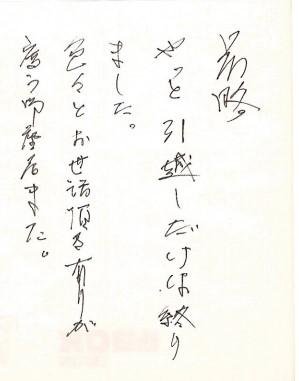 前略
やっと引越しだけは終り
ました。
色々とお世話頂き有りが
度う御座居ました。